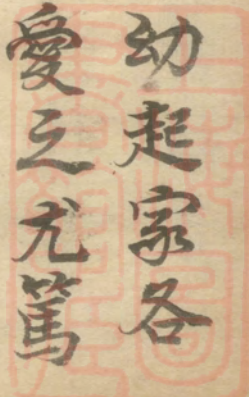 幼起家各
愛之尤篤